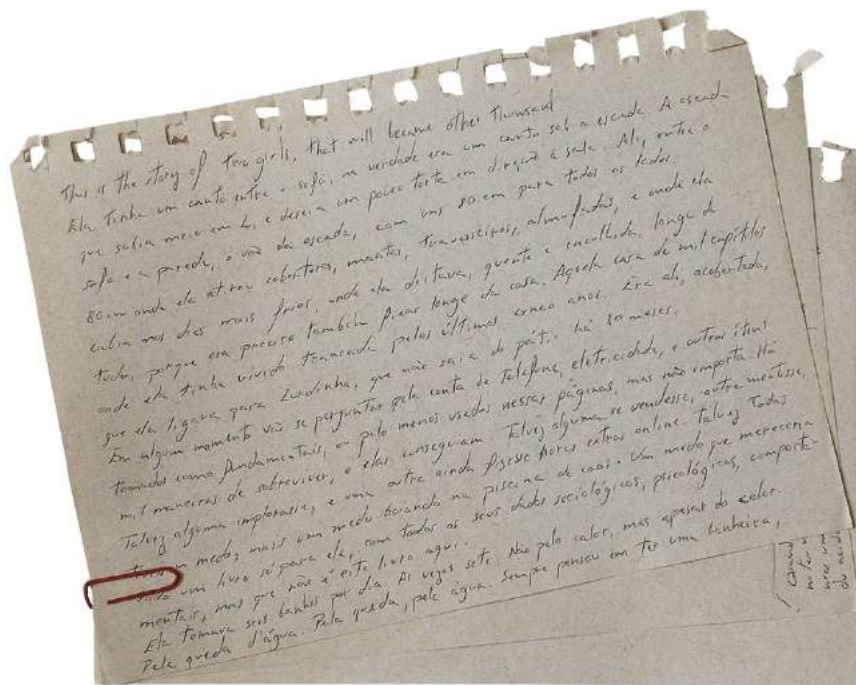 This is the story of two girls, that will became other thousand
Ela tinha um canto entre o sofá, na verdade era um canto sob a escada. A escada
que subia meio em L, e descia um pouco torta em direção à sala. Ali, entre o
sofá e a parede, o vão da escada, com uns 80 cm para todos os lados.
80 cm onde ela atirou cobertores, mantas, travesseiros, almofadas, e onde ela
cabia nos dias mais frios, onde ela deitava, quente e encolhida, longe de
tudo, porque era preciso também ficar longe da casa. Aquela casa de mil capítulos
onde ela tinha vivido trancada pelos últimos cinco anos. Era ali, acobertada,
que ela ligava para Lurdinha, que não saía do pátio há 30 meses.
Em algum momento vão se perguntar pela conta de telefone, eletricidade, e outros itens
tomados como fundamentais, ou pelo menos usados nessas páginas, mas não importa. Há
mil maneiras de sobreviver, e elas conseguiam. Talvez alguma se vendesse, outra mentisse,
Talvez alguma implorasse, e uma outra ainda fizesse horas extras online. Talvez todas
um medo, mais um medo boiando na piscina de caos. Um medo que mereceria
um livro só para ela, com todos os seus dados sociológicos, psicológicos, comporta-
mentais, mas que não é este livro aqui.
Ela tomava seis banhos por dia. Às vezes sete. Não pelo calor, mas apesar do calor.
Pela queda d'água. Pela queda, pela água. Sempre pensou em ter uma banheira,
Quando